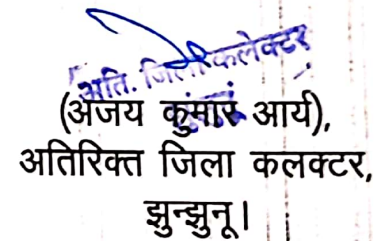 अति. जिला कलेक्टर
(अजय कुमार आर्य),
अतिरिक्त जिला कलक्टर,
झुन्झुनू।